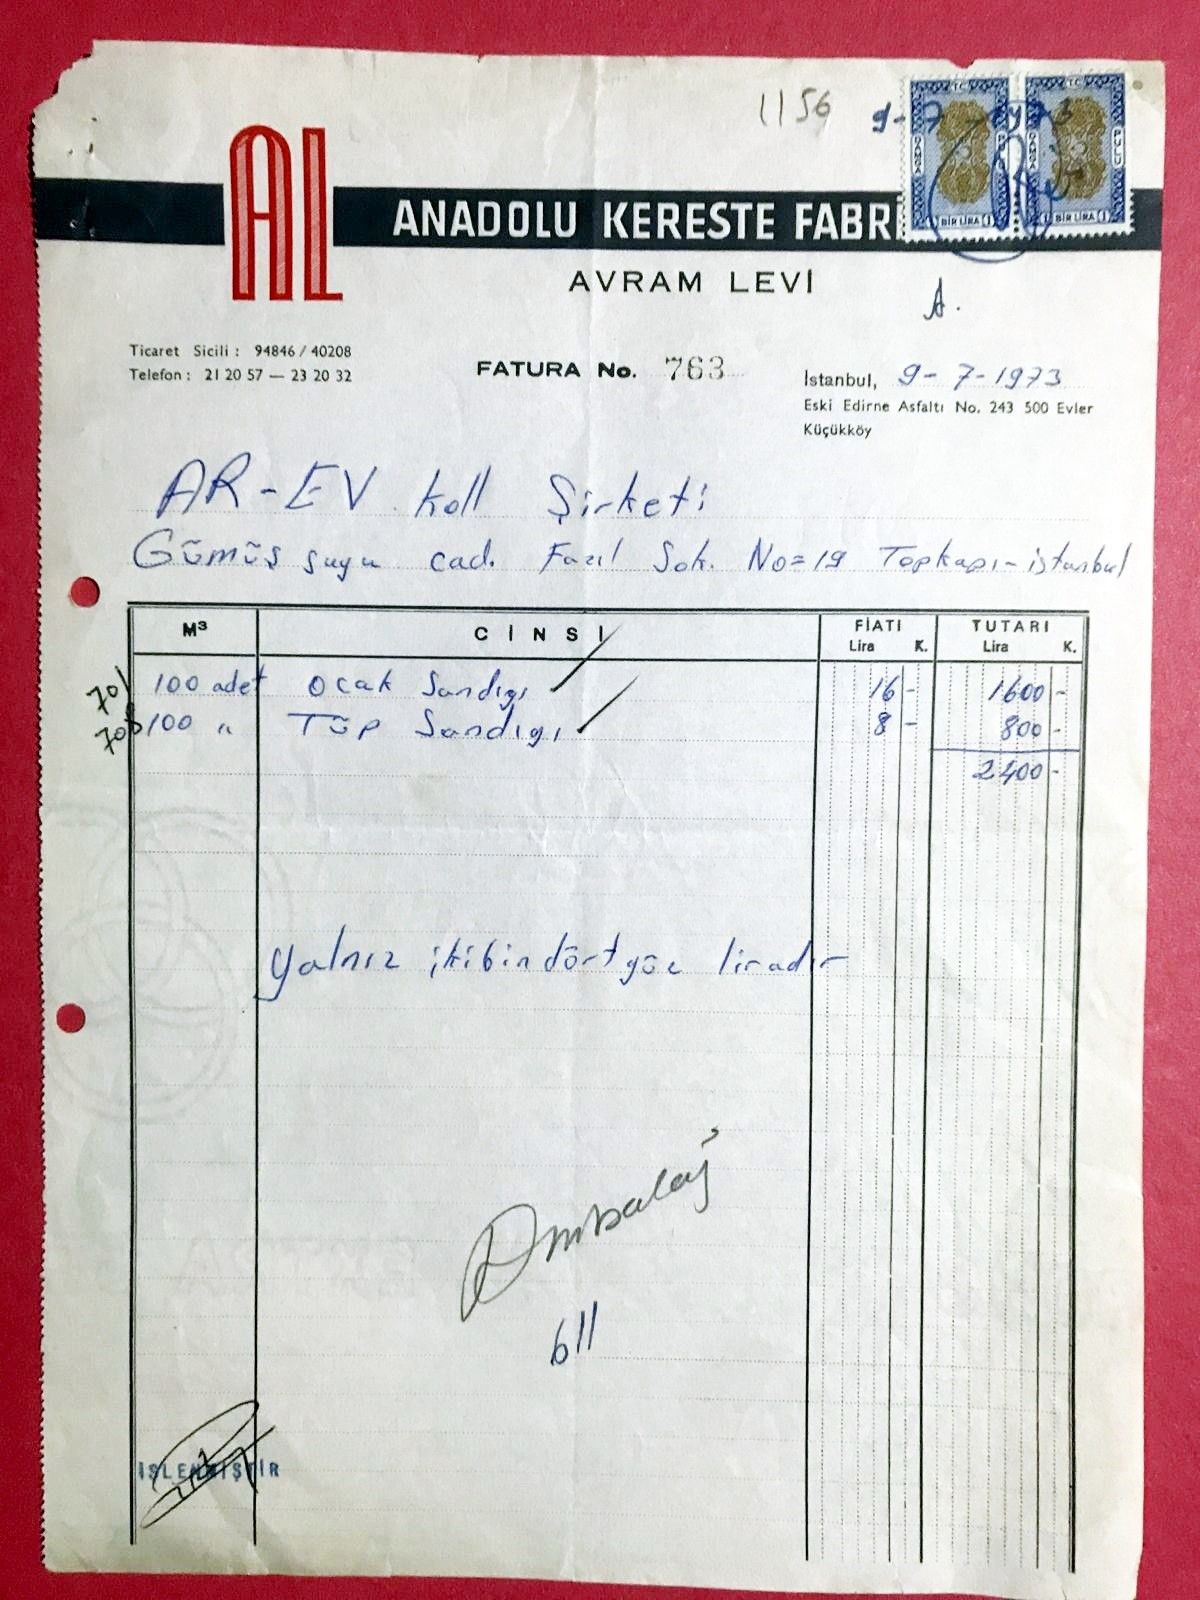 1156 9-7-1973
AL
ANADOLU KERESTE FABR
BİR LİRA (1) BİR LİRA (1)
AVRAM LEVİ
A.
Ticaret Sicili : 94846 / 40208
Telefon : 21 20 57 — 23 20 32
FATURA No. 763
İstanbul, 9-7-1973
Eski Edirne Asfaltı No. 243 500 Evler
Küçükköy
AR-EV koll Şirketi
Gümüş suyu cad. Fazıl Sok. No=19 Topkapı-istanbul
M³ CİNSİ FİATI TUTARI
Lira K. Lira K.
701 100 adet Ocak Sandıgı 16 - 1600 -
100 " Tüp Sandıgı 8 - 800 -
2400 -
Yalnız ikibindörtyüz liradır
Ambalaj
611
İŞLENMİŞTİR